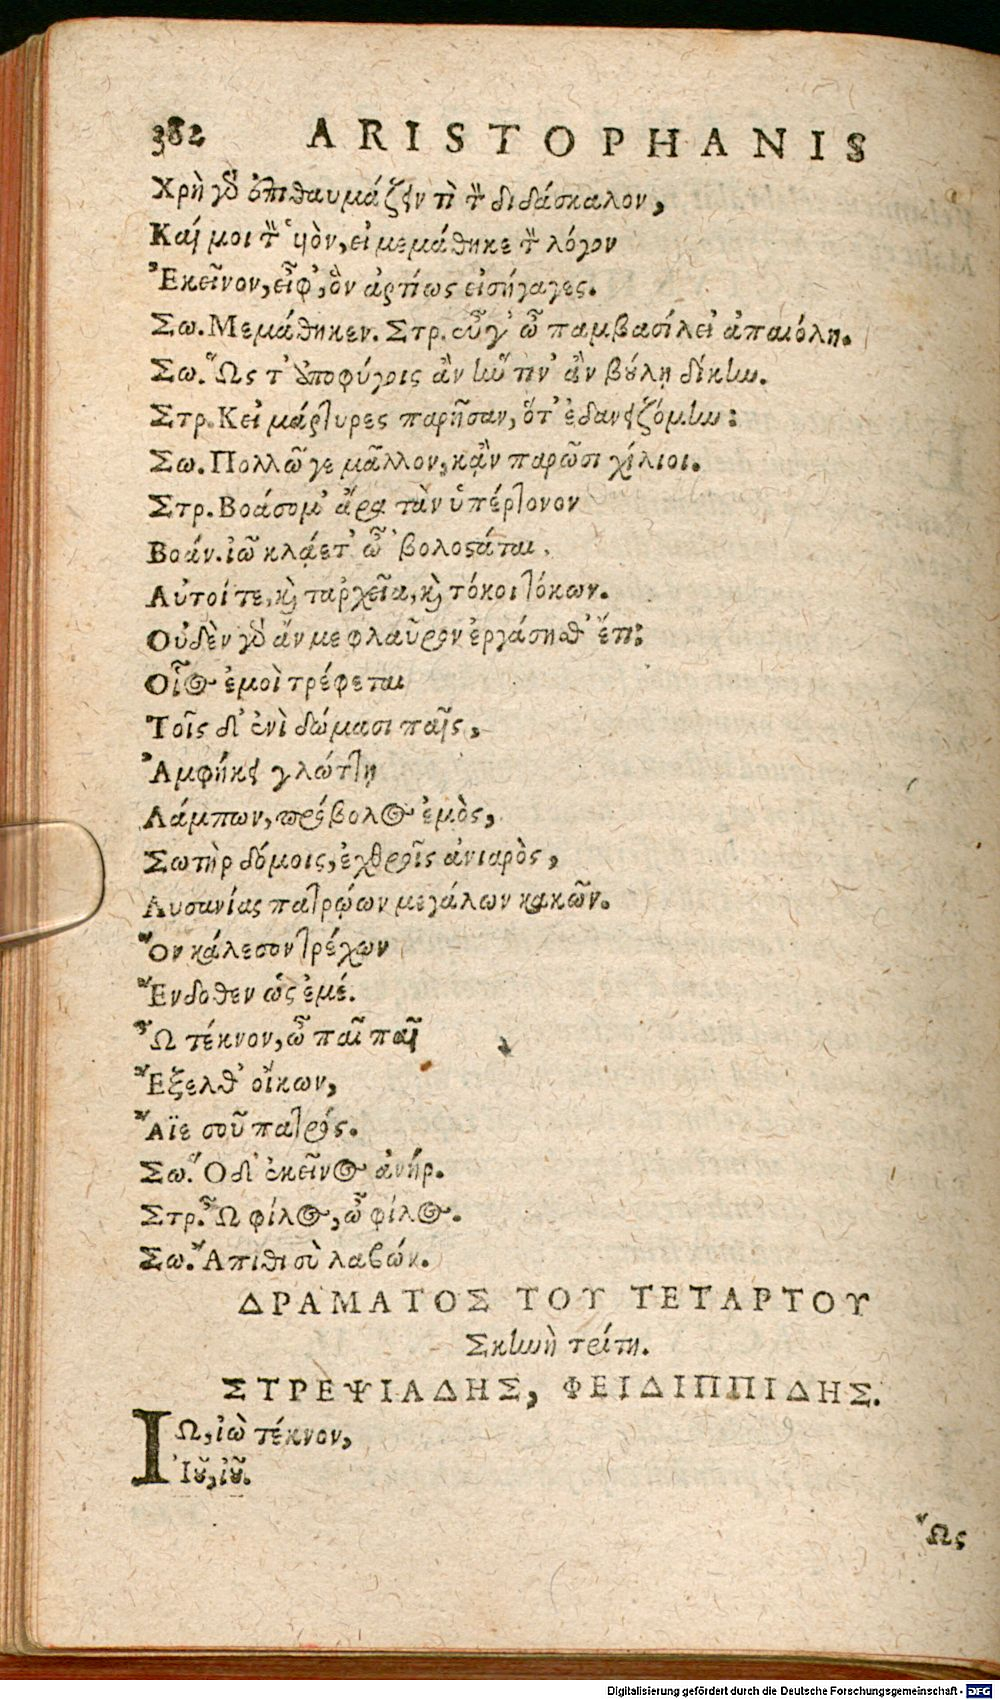 382 ARISTOPHANIS
Χρὴ γὸ ἐπιθαυμάζειν τὶ τ̃ διδάσκαλον,
Καί μοι τ̃ ὑὸν, εἰ μεμάθηκε τ̃ λόγον
Ἐκεῖνον, εἶφ', ὃν ἀρτίως εἰσήγαγες.
Σω. Μεμάθηκεν. Στρ. εὖγ' ὦ παμβασίλει ἀπαιόλη.
Σω. Ὥς τ' ἀποφύγοις ἂν ἥν τιν' ἂν βούλῃ δίκην.
Στρ. Κεἰ μάρτυρες παρῆσαν, ὅτ' ἐδανειζόμην;
Σω. Πολλῷ γε μᾶλλον, κᾂν παρῶσι χίλιοι.
Στρ. Βοάσομ' ἄρα τὰν ὑπέρτονον
Βοάν. ἰῶ κλάετ' ὦ 'βολοστάται.
Αὐτοί τε, κὶ ταρχεῖα, κὶ τόκοι τόκων.
Οὐδὲν γὸ ἄν με φλαῦρον ἐργάσησθ' ἔτι;
Οἷος ἐμοὶ τρέφεται
Τοῖς δ' ἐνὶ δώμασι παῖς,
Ἀμφήκει γλώττῃ
Λάμπων, πρόβολος ἐμὸς,
Σωτὴρ δόμοις, ἐχθροῖς ἀνιαρὸς,
Λυσανίας πατρῴων μεγάλων κακῶν.
Ὃν κάλεσον τρέχων
Ἔνδοθεν ὡς ἐμέ.
Ὦ τέκνον, ὦ παῖ παῖ
Ἔξελθ' οἴκων,
Ἄϊε σοῦ πατρός.
Σω. Ὅδ' ἐκεῖνος ἀνήρ.
Στρ. Ὦ φίλος, ὦ φίλος.
Σω. Ἄπιθι σὺ λαβών.
ΔΡΑΜΑΤΟΣ ΤΟΥ ΤΕΤΑΡΤΟΥ
Σκηνὴ τρίτη.
ΣΤΡΕΨΙΑΔΗΣ, ΦΕΙΔΙΠΠΙΔΗΣ.
ΙΩ, ἰὼ τέκνον,
Ἰοῦ, ἰοῦ.
Ὥς
Digitalisierung gefördert durch die Deutsche Forschungsgemeinschaft - DFG